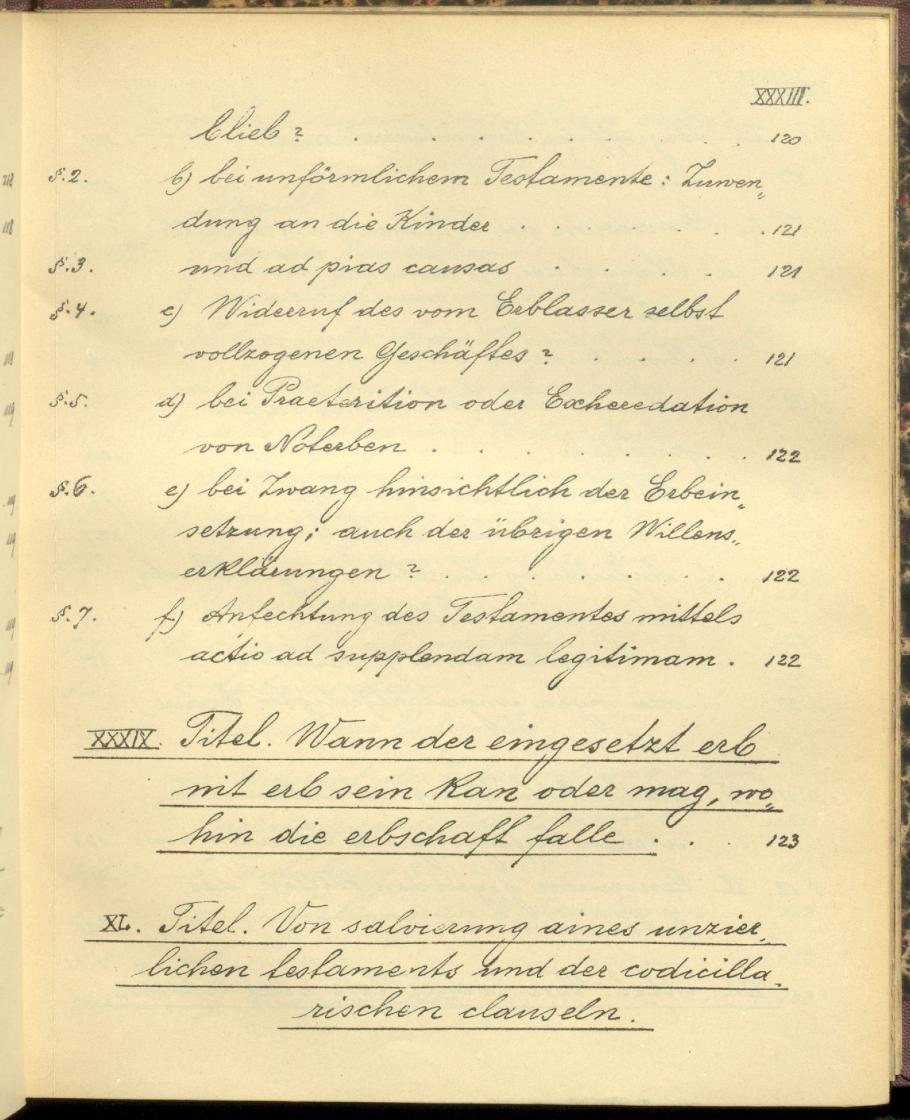 XXXIII.
blieb? . . . . . . . 120
§.2. b) bei unförmlichem Testamente: Zuwen„
dung an die Kinder . . . . . . 121
§.3. und ad pias causas . . . . 121
§.4. c) Widerruf des vom Erblasser selbst
vollzogenen Geschäftes? . . . . 121
§.5. d) bei Praeterition oder Exheredation
von Noterben . . . . . . . 122
§.6. e) bei Zwang hinsichtlich der Erbein„
setzung; auch der übrigen Willens„
erklärungen? . . . . . . . 122
§.7. f) Anfechtung des Testamentes mittels
actio ad supplendam legitimam . 122
XXXIX. Titel. Wann der eingesetzt erb
nit erb sein kan oder mag, wo„
hin die erbschaft falle . . . 123
XL. Titel. Von salvierung aines unzier„
lichen testaments und der codicilla„
rischen clauseln.